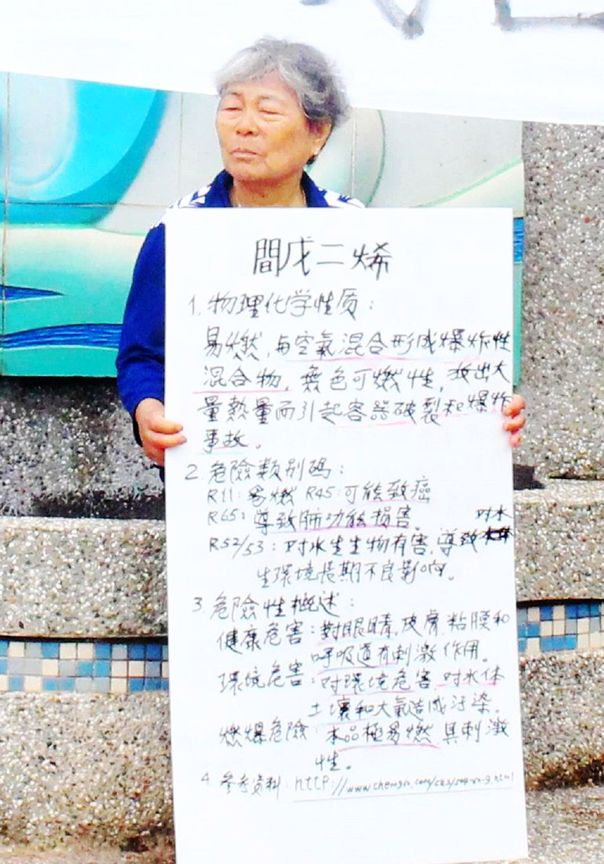 間戊二烯
1. 物理化学性质：
易燃，与空氣混合形成爆炸性
混合物，無色可燃性，放出大
量熱量而引起容器破裂和爆炸
事故。
2. 危險類別碼：
R11：易燃 R45：可能致癌
R65：導致肺功能損害。
R52/53：对水生生物有害，導致对水
生环境長期不良影响。
3. 危險性概述：
健康危害：對眼睛，皮膚，粘膜和
呼吸道有刺激作用。
环境危害：对環境危害，对水体
土壤和大氣造成污染。
燃爆危險：本品極易燃 具刺激
性。
4. 參考資料：http://www.